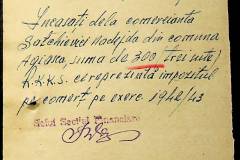 Incasați dela comersianta
Satchievici Nadejda din comuna
Agiaxa, suma de 300 (trei sute)
R.K.K.S. ce reprezintă impozitul
pe comerț pe exerc. 1942/43
Șeful Secției Financiare